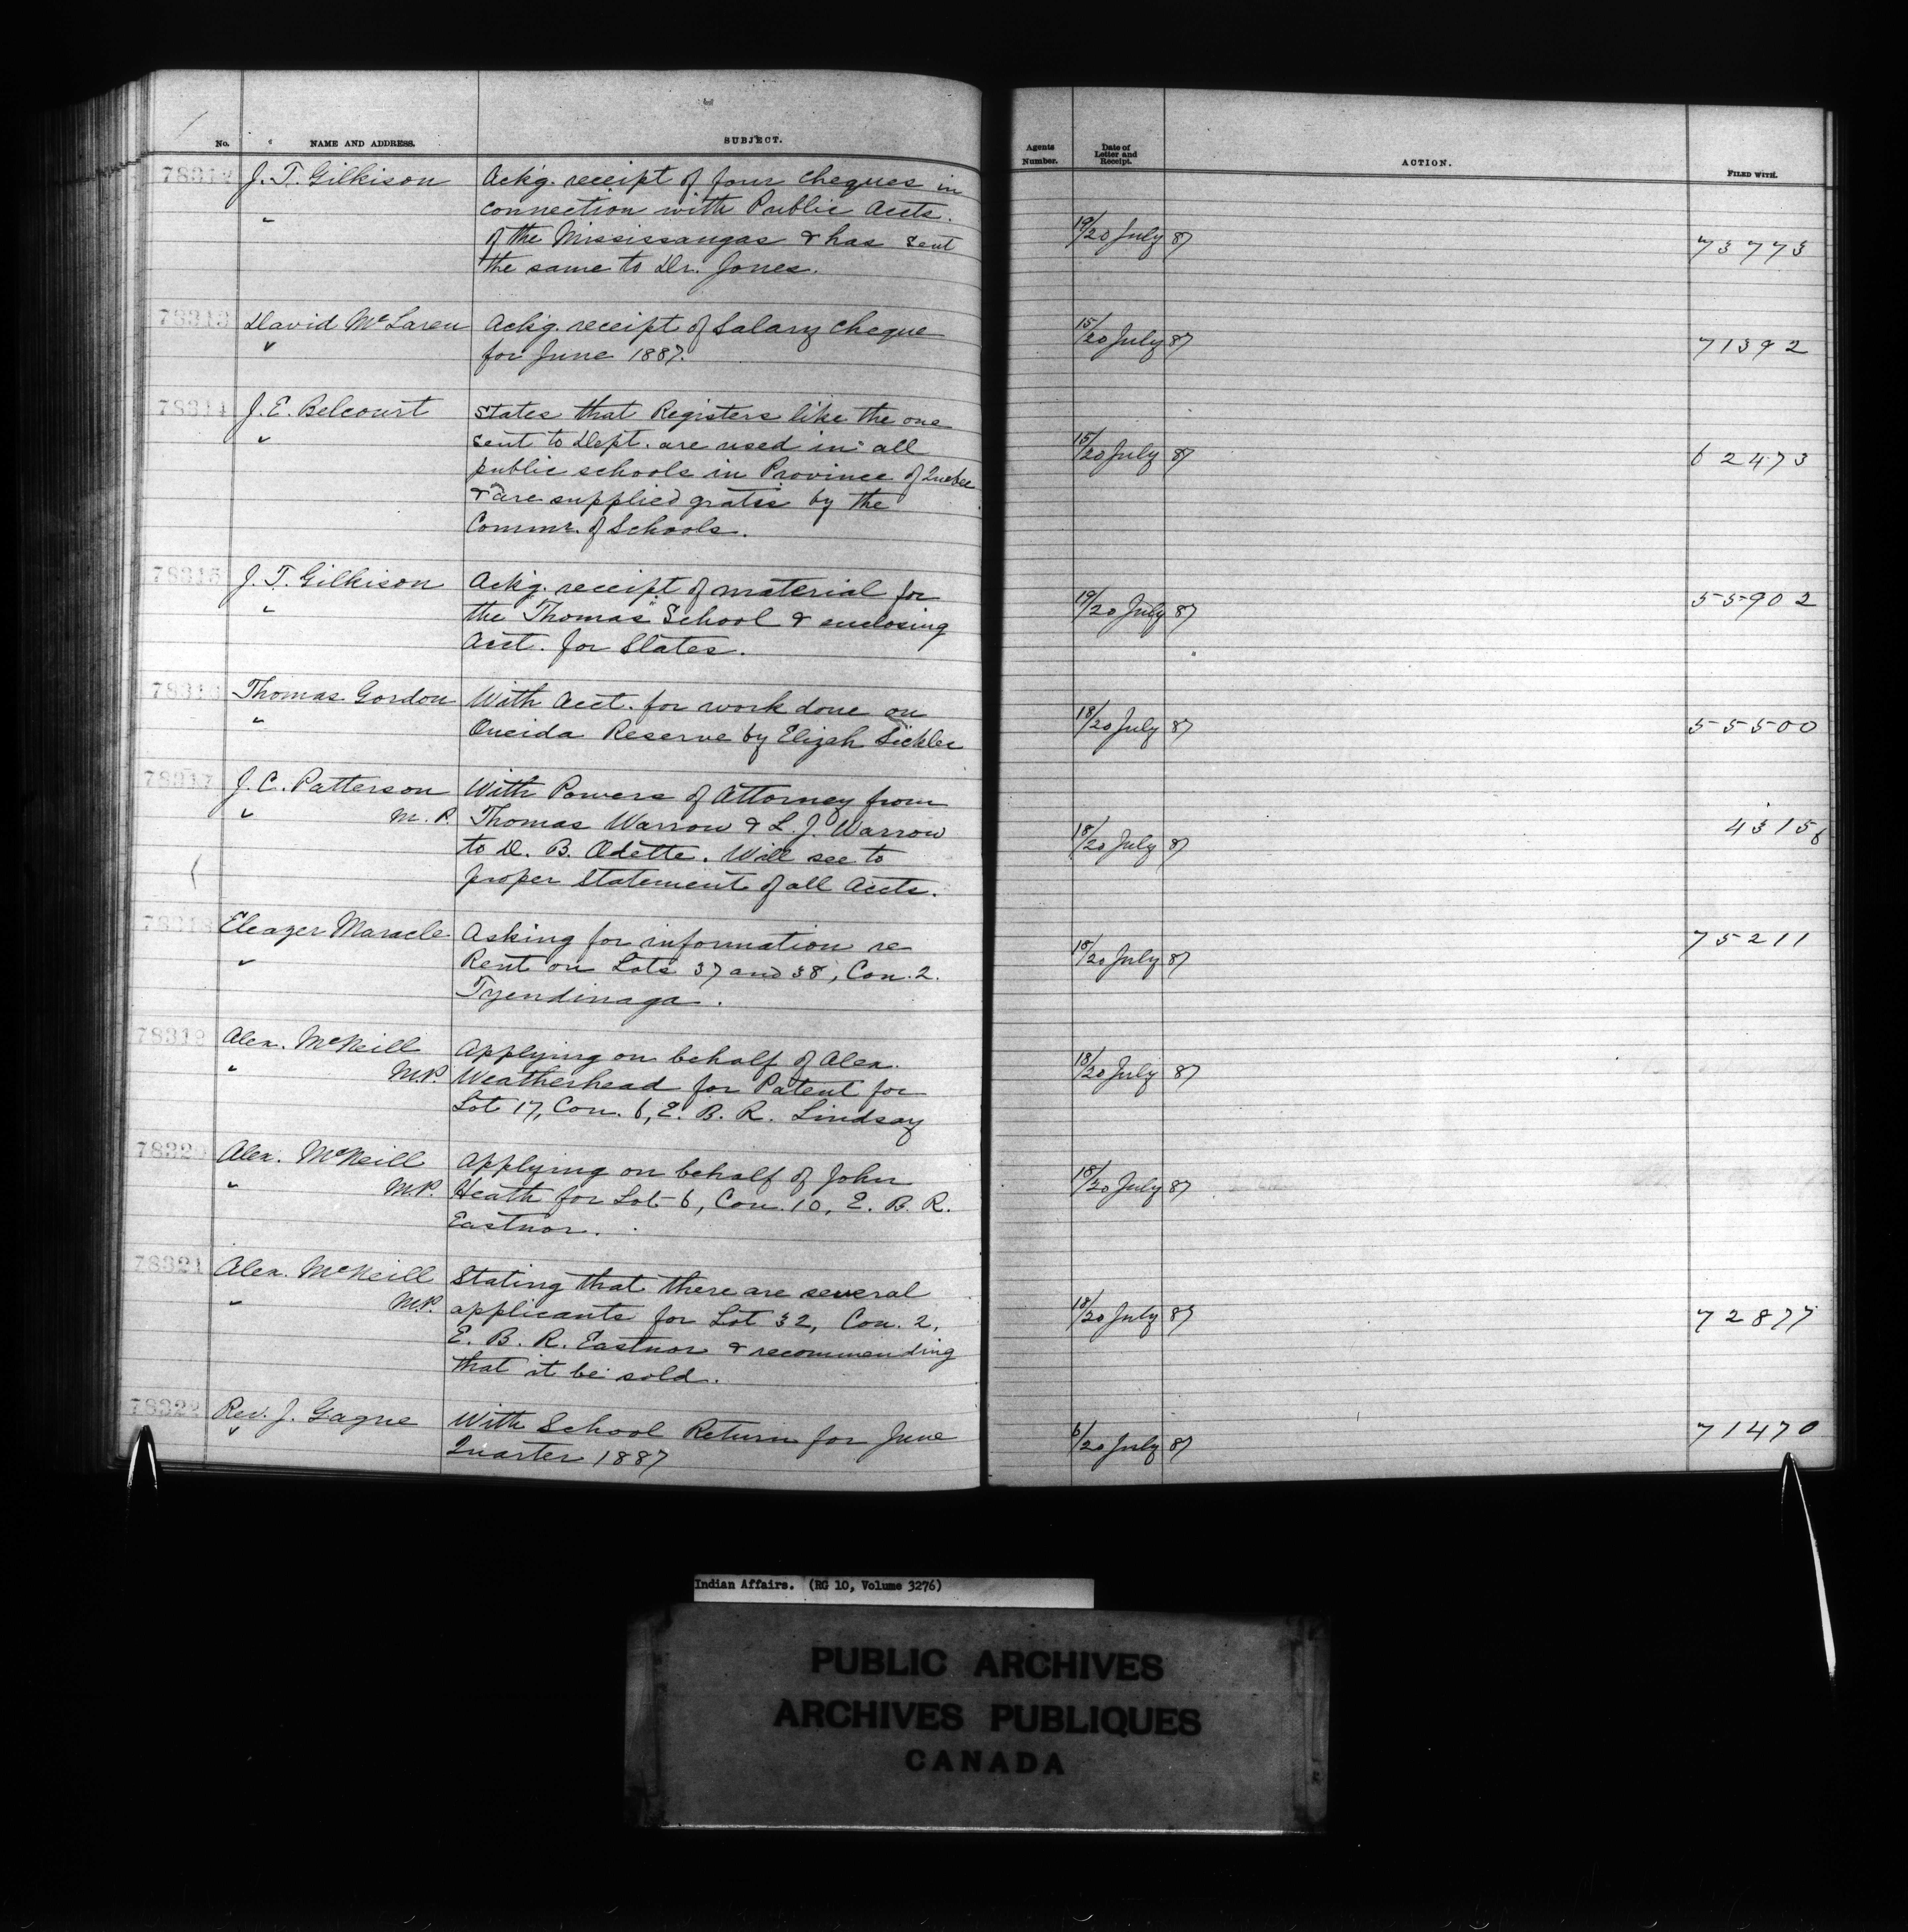 No. NAME AND ADDRESS. SUBJECT.
78312 J. T. Gilkison Ackg. receipt of four cheques in
connection with Public Accts.
of the Mississaugas & has sent
the same to Dr. Jones.
78313 David McLaren Ackg. receipt of Salary cheque
for June 1887.
78314 J. E. Belcourt States that Registers like the one
sent to Dept. are used in all
public schools in Province of Quebec
& are supplied gratis by the
Commr. of Schools.
78315 J. T. Gilkison Ackg. receipt of material for
the "Thomas" School & enclosing
Acct. for Slates.
78316 Thomas Gordon With Acct. for work done on
Oneida Reserve by Elijah Sickles
78317 J. C. Patterson With Powers of Attorney from
M. P. Thomas Warrow & L. J. Warrow
to D. B. Odette. Will see to
proper Statement of all Accts.
78318 Eleazer Maracle Asking for information re
Rent on Lots 37 and 38, Con. 2.
Tyendinaga.
78319 Alex. McNeill Applying on behalf of Alex.
M.P. Weatherhead for Patent for
Lot 17, Con. 6, E. B. R. Lindsay
78320 Alex. McNeill Applying on behalf of John
M.P. Heath for Lot 6, Con. 10, E. B. R.
Eastnor.
78321 Alex. McNeill Stating that there are several
M.P. applicants for Lot 32, Con. 2,
E. B. R. Eastnor & recommending
that it be sold.
78322 Rev. J. Gagne With School Return for June
Quarter 1887
Agents Number. Date of Letter and Receipt. ACTION. FILED WITH.
19/20 July 87 73773
15/20 July 87 71392
15/20 July 87 62473
19/20 July 87 55902
18/20 July 87 55500
18/20 July 87 43156
18/20 July 87 75211
18/20 July 87
18/20 July 87
18/20 July 87 72877
6/20 July 87 71470
Indian Affairs. (RG 10, Volume 3276)
PUBLIC ARCHIVES
ARCHIVES PUBLIQUES
CANADA